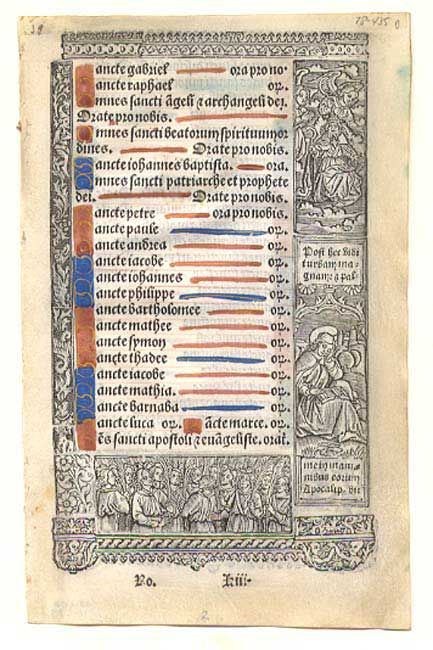 78-435 0
Sancte gabriel ora pro no
Sancte raphael or.
Omnes sancti āgeli ⁊ archangeli dei.
Orate pro nobis.
Omnes sancti beatorum spirituum or
dines. Orate pro nobis.
Sancte iohannes baptista. ora.
Omnes sancti patriarche et prophete
dei. Orate pro nobis.
Sancte petre ora pro nobis.
Sancte paule or.
Sancte andrea or.
Sancte iacobe or.
Sancte iohannes or.
Sancte philippe or.
Sancte bartholomee or.
Sancte mathee or.
Sancte symon or.
Sancte thadee or.
Sancte iacobe or.
Sancte mathia. or.
Sancte barnaba or.
Sancte luca or. Sācte marce. or.
Oēs sancti apostoli ⁊ euāgeliste. orat.
Post hec vidi
turbam ma-
gnam: ⁊ pal-
me in mani-
nibus eorum
Apocalip. vii